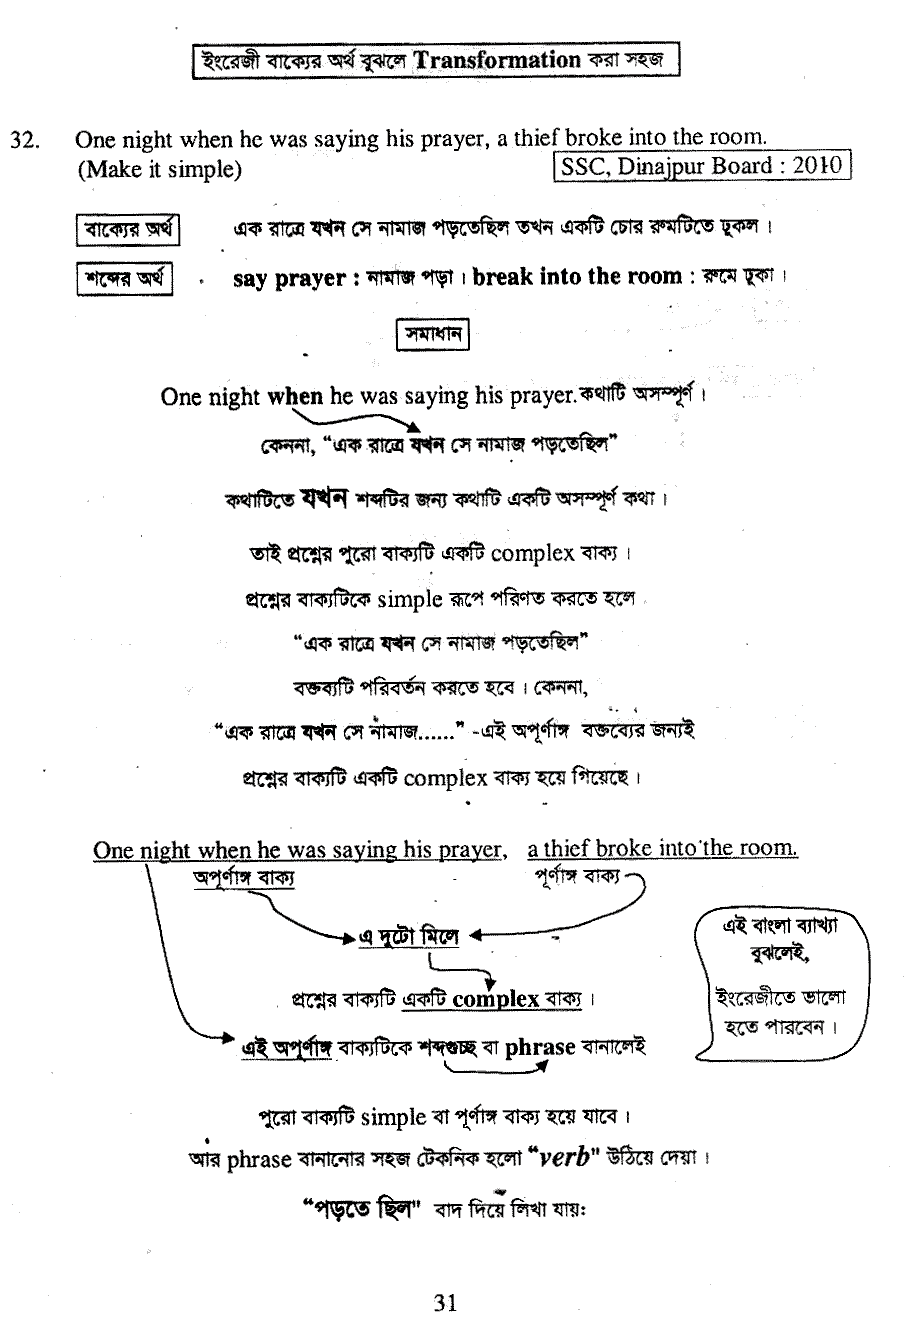 ইংরেজী বাক্যের অর্থ বুঝলে Transformation করা সহজ
32. One night when he was saying his prayer, a thief broke into the room.
(Make it simple) SSC, Dinajpur Board : 2010
বাক্যের অর্থ এক রাত্রে যখন সে নামাজ পড়তেছিল তখন একটি চোর রুমটিতে ঢুকল ।
শব্দের অর্থ say prayer : নামাজ পড়া । break into the room : রুমে ঢুকা ।
সমাধান
One night when he was saying his prayer. কথাটি অসম্পূর্ণ ।
কেননা, “এক রাত্রে যখন সে নামাজ পড়তেছিল”
কথাটিতে যখন শব্দটির জন্য কথাটি একটি অসম্পূর্ণ কথা ।
তাই প্রশ্নের পুরো বাক্যটি একটি complex বাক্য ।
প্রশ্নের বাক্যটিকে simple রূপে পরিণত করতে হলে
“এক রাত্রে যখন সে নামাজ পড়তেছিল”
বক্তব্যটি পরিবর্তন করতে হবে । কেননা,
“এক রাত্রে যখন সে নামাজ......” -এই অপূর্ণাঙ্গ বক্তব্যের জন্যই
প্রশ্নের বাক্যটি একটি complex বাক্য হয়ে গিয়েছে ।
One night when he was saying his prayer, a thief broke into the room.
অপূর্ণাঙ্গ বাক্য পূর্ণাঙ্গ বাক্য
এ দুটো মিলে
প্রশ্নের বাক্যটি একটি complex বাক্য ।
এই অপূর্ণাঙ্গ বাক্যটিকে শব্দগুচ্ছ বা phrase বানালেই
এই বাংলা ব্যাখ্যা
বুঝলেই,
ইংরেজীতে ভালো
হতে পারবেন ।
পুরো বাক্যটি simple বা পূর্ণাঙ্গ বাক্য হয়ে যাবে ।
আর phrase বানানোর সহজ টেকনিক হলো “verb" উঠিয়ে দেয়া ।
“পড়তে ছিল" বাদ দিয়ে লিখা যায়ঃ
31